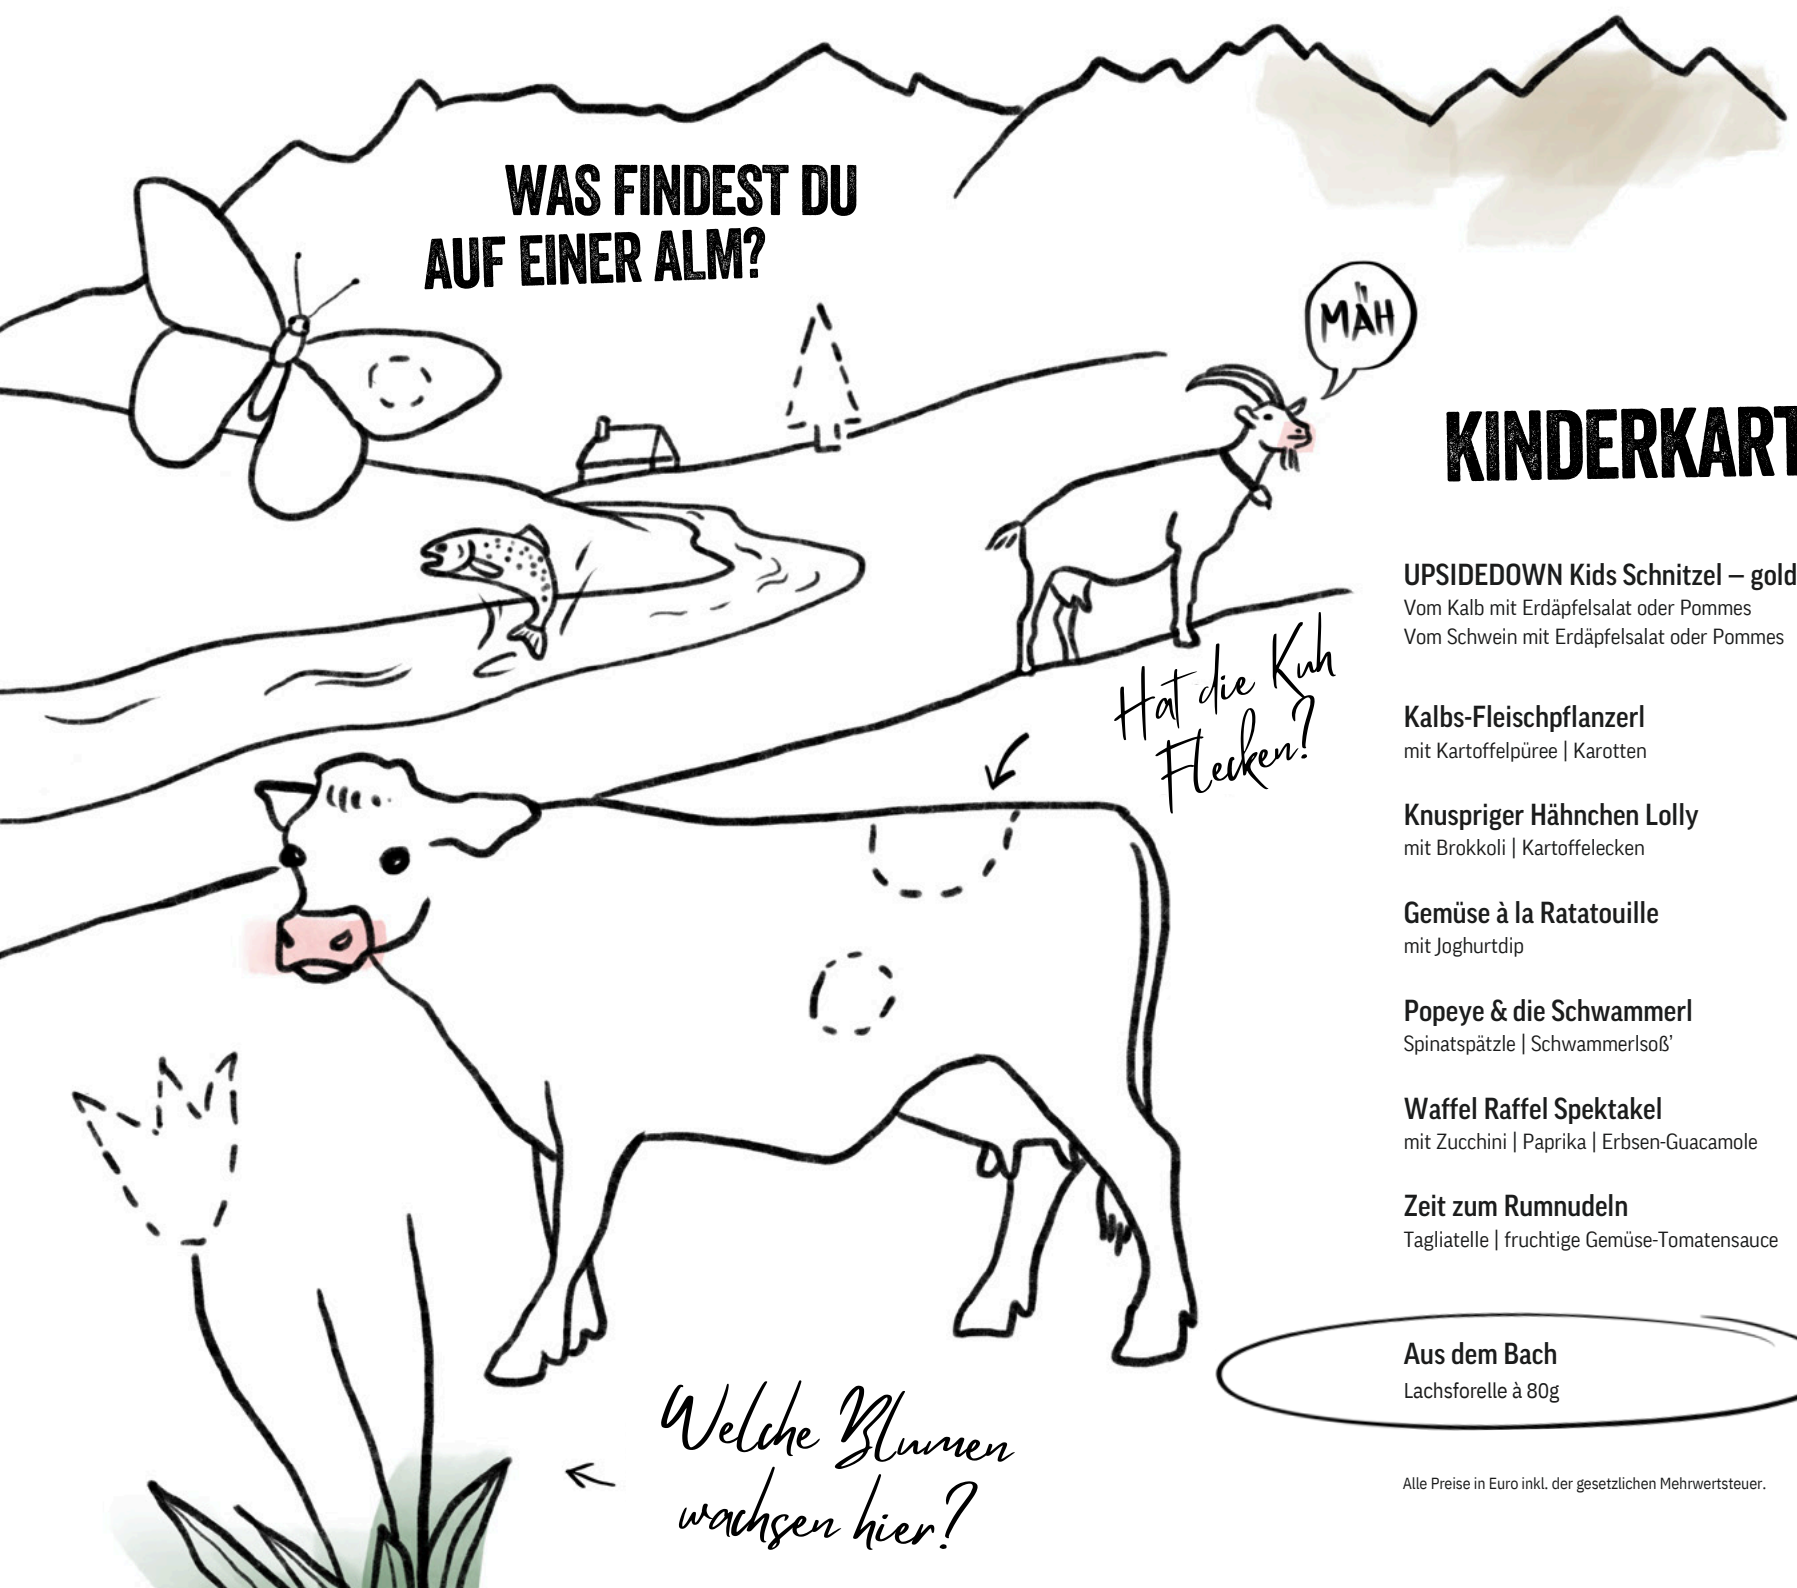 WAS FINDEST DU
AUF EINER ALM?
MÄH
Hat die Kuh
Flecken?
Welche Blumen
wachsen hier?
KINDERKART
UPSIDEDOWN Kids Schnitzel – gold
Vom Kalb mit Erdäpfelsalat oder Pommes
Vom Schwein mit Erdäpfelsalat oder Pommes
Kalbs-Fleischpflanzerl
mit Kartoffelpüree | Karotten
Knuspriger Hähnchen Lolly
mit Brokkoli | Kartoffelecken
Gemüse à la Ratatouille
mit Joghurtdip
Popeye & die Schwammerl
Spinatspätzle | Schwammerlsoß’
Waffel Raffel Spektakel
mit Zucchini | Paprika | Erbsen-Guacamole
Zeit zum Rumnudeln
Tagliatelle | fruchtige Gemüse-Tomatensauce
Aus dem Bach
Lachsforelle à 80g
Alle Preise in Euro inkl. der gesetzlichen Mehrwertsteuer.